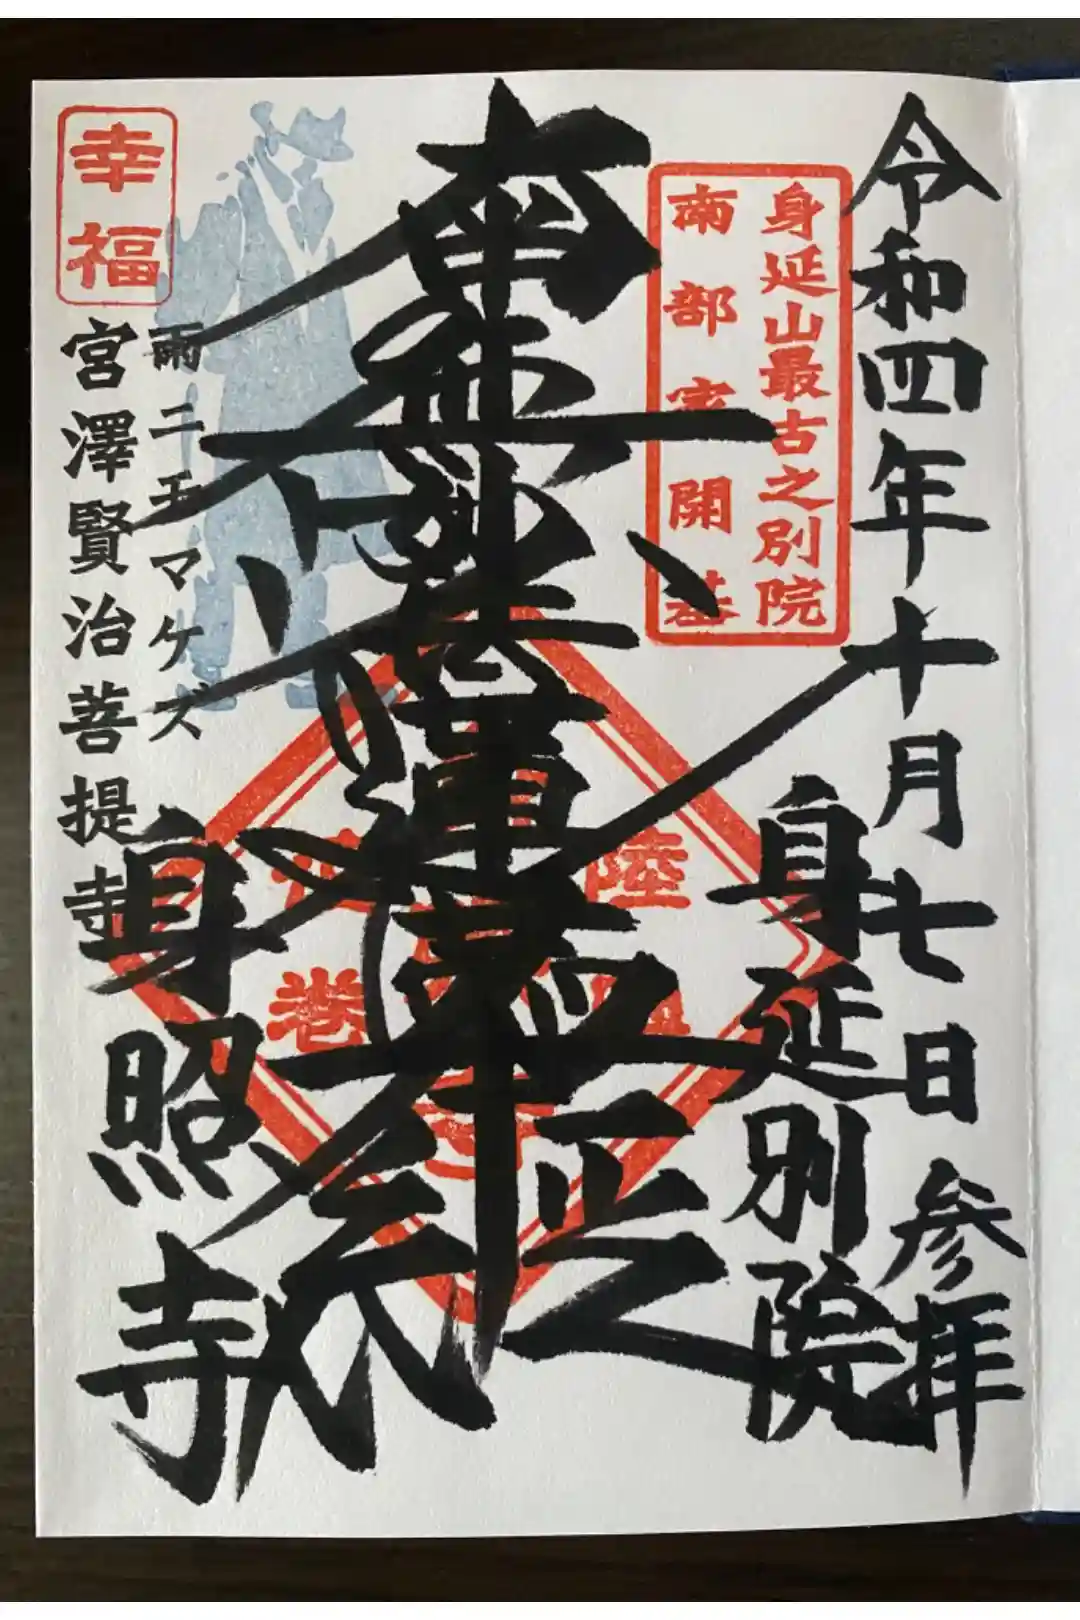 令和四年十月七日 参拝
身延山最古之別院
南部家開基
身延別院
南無妙法蓮華経
正之
幸福
雨ニモマケズ
宮澤賢治菩提寺
身照寺
陸
巻